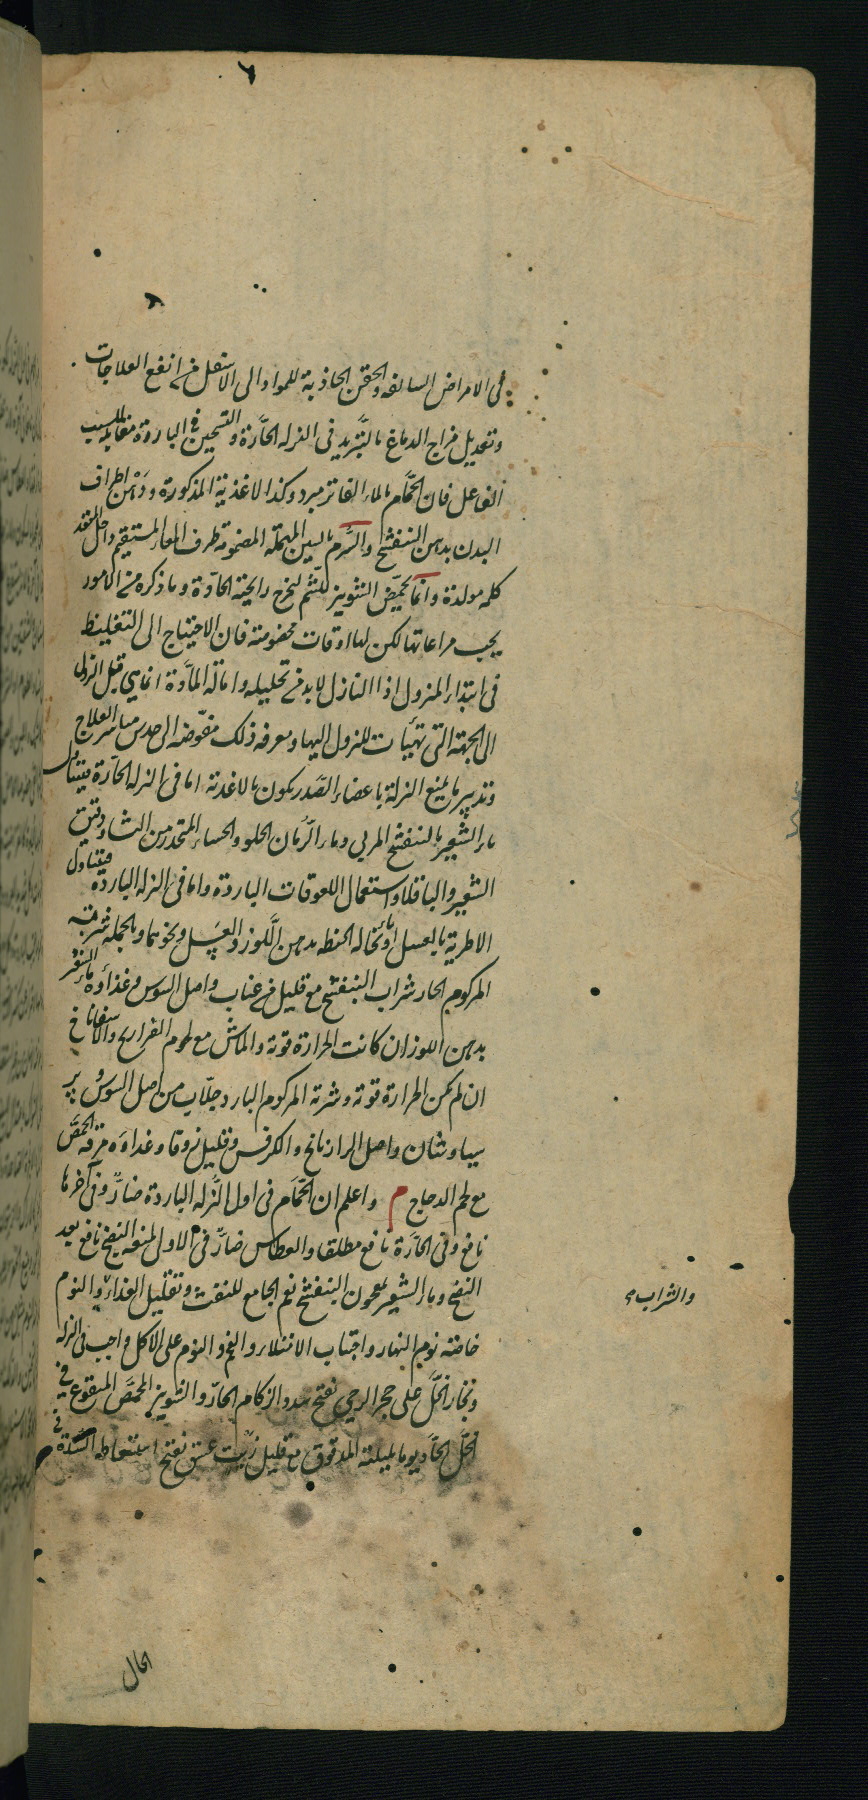 فى الامراض السالفه والحقن الجاذبة للمواد الى الاسفل من انفع العلاجات
وتعديل مزاج الدماغ بالتبريد فى النزله الحارّة والتسخين فى الباردة مقابلة للسبب
الفاعل فان الحمّام بالماء الفاتر مبرد وكذا الاغذية المذكورة ودهن اطراف
البدن بدهن البنفسج والسُّرم بالسين المهملة المضمومة طرف المعاء المستقيم داخل المقعد
كلمه مولدة وانما يحمّص الشونيز للشم ليخرج رايحته الحادّة وما ذكره من الامور
يجب مراعاتها لكن لها اوقات مخصوصة فان الاحتياج الى التغليظ
فى ابتداء النزول اذا النازل لابد من تحليله وامالة المادّة انما هى قبل النزول
الى الجهة التى تهيأت للنزول اليها ومعرفه ذلك مفوّضه الى حدس مباشر العلاج
وتدبير ما يمنع النزلة باعضاء الصَّدر يكون بالاغذية اما فى النزله الحارّة فيتناول
ماء الشعير بالبنفسج المربى وماء الرّمان الحلو والحساء المتخذ من النشا ودقيق
الشعير والباقلا واستعمال اللعوقات الباردة واما فى النزله الباردة فيتناول
الاطرية بالعسل او بماء نخاله الحنطه بدهن اللَّوز والعسل ونحوهما وبالجمله شربة
المزكوم الحار شراب البنفسج مع قليل من عناب واصل السوس وغذاؤه ماء الشعير
بدهن اللوز ان كانت الحرارة قوية والماش مع لحوم الفراريج والاسفاناخ
ان لم تكن الحرارة قوية وشربة المزكوم البارد جلّاب من اصل السوس وبر
سياوشان واصل الرازيانج والكرفس وقليل زوفا وغداؤه مرقه الحمّص
مع لحم الدجاج م واعلم ان الحمّام فى اول النَّزله الباردة ضارّ وفى آخرها
نافع وفى الحارّة نافع مطلقا والعطاس ضارّ فى الاول لمنعه النضج نافع بعد
النضج وماء الشعير بمعجون البنفسج نعم الجامع للنفث وتقليل الغذاء والنوم
والشراب
خاصّة نوم النهار واجتناب الامتلاء والتخم والنوم على الاكل واجب فى النزله
وبخار الخلّ على حجر الرحى يفتح سدد الزكام الحارّ والشونيز المحمّص المنقوع فى
الخلّ الحادّ يوما بليلته المدقوق مع قليل زيت عتيق يفتح استعاطه السّدّة فى
الحال